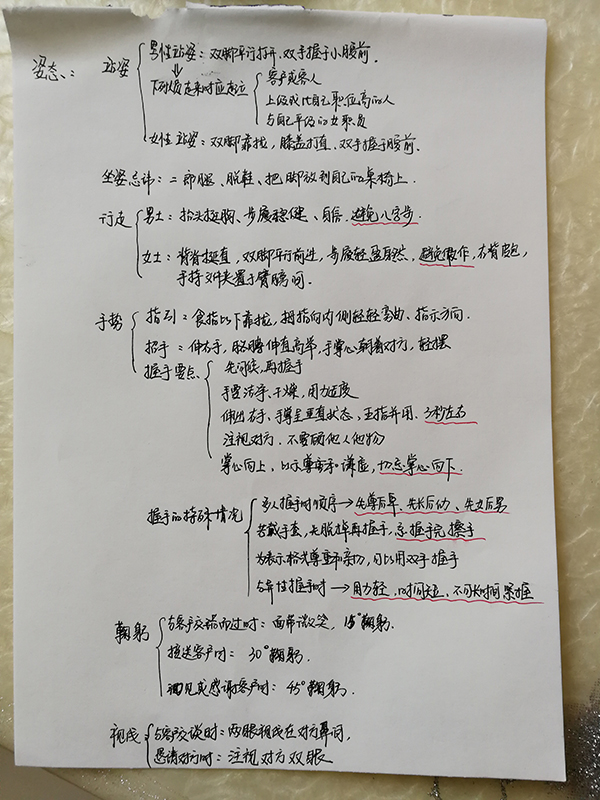 姿态: 站姿 男性站姿: 双脚平行打开、双手握于小腹前.
下列人员走来时应起立 客户或客人
上级或比自己职位高的人
与自己平级的女职员
女性站姿: 双脚靠拢, 膝盖打直、双手握于腹前.
坐姿忌讳: 二郎腿、脱鞋、把脚放到自己的桌椅上.
行走 男士: 抬头挺胸、步履稳健、自信、避免八字步.
女士: 背脊挺直, 双脚平行前进, 步履轻盈自然、避免做作, 右肩背包,
手持文件夹置于臂膀间.
手势 指引: 食指以下靠拢, 拇指向内侧轻轻弯曲、指示方向.
招手: 伸右手, 胳膊伸直高举, 手掌心朝着对方, 轻摆
握手要点 先问候, 再握手
手要洁净、干燥, 用力适度
伸出右手、手掌呈垂直状态、五指并用、3秒左右
注视对方、不要顾他人他物
掌心向上、以示尊重和谦虚, 切忌掌心向下.
握手的特殊情况 多人握手时顺序→先尊后卑、先长后幼、先女后男
若戴手套, 先脱掉再握手, 忌握手完擦手
为表示格外尊重和亲切, 可以用双手握手
与异性握手时→用力轻、时间短、不可长时间紧握
鞠躬 与客户交错而过时: 面带微笑、15°鞠躬.
接送客户时: 30°鞠躬.
遇见或感谢客户时: 45°鞠躬.
视线 与客户交谈时: 两眼视线在对方鼻间,
恳请对方时: 注视对方双眼